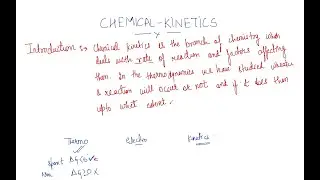 CHEMICAL-KINETICS
Introduction :- Chemical kinetics is the branch of chemistry which
deals with rate of reaction and factors affecting
them. In the thermodynamics we have studied whether
a reaction will occur or not and if it does then
upto what extent.
Thermo Electro Kinetics
Spont ΔG(-)ve
Non ΔG>0 X